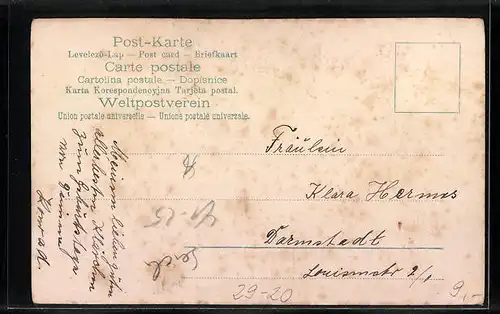 Post-Karte
Levelező-Lap — Post card — Briefkaart
Carte postale
Cartolina postale — Dopisnice
Karta Korespondencyjna Tarjeta postal.
Weltpostverein
Union postale universelle — Unione postale universale.
Fräulein
Klara Hermes
Darmstadt
Louisenstr 2/1
Meinem lieben guten
allerbesten Klärchen
zum Geburtstage
von
29-20
9,-